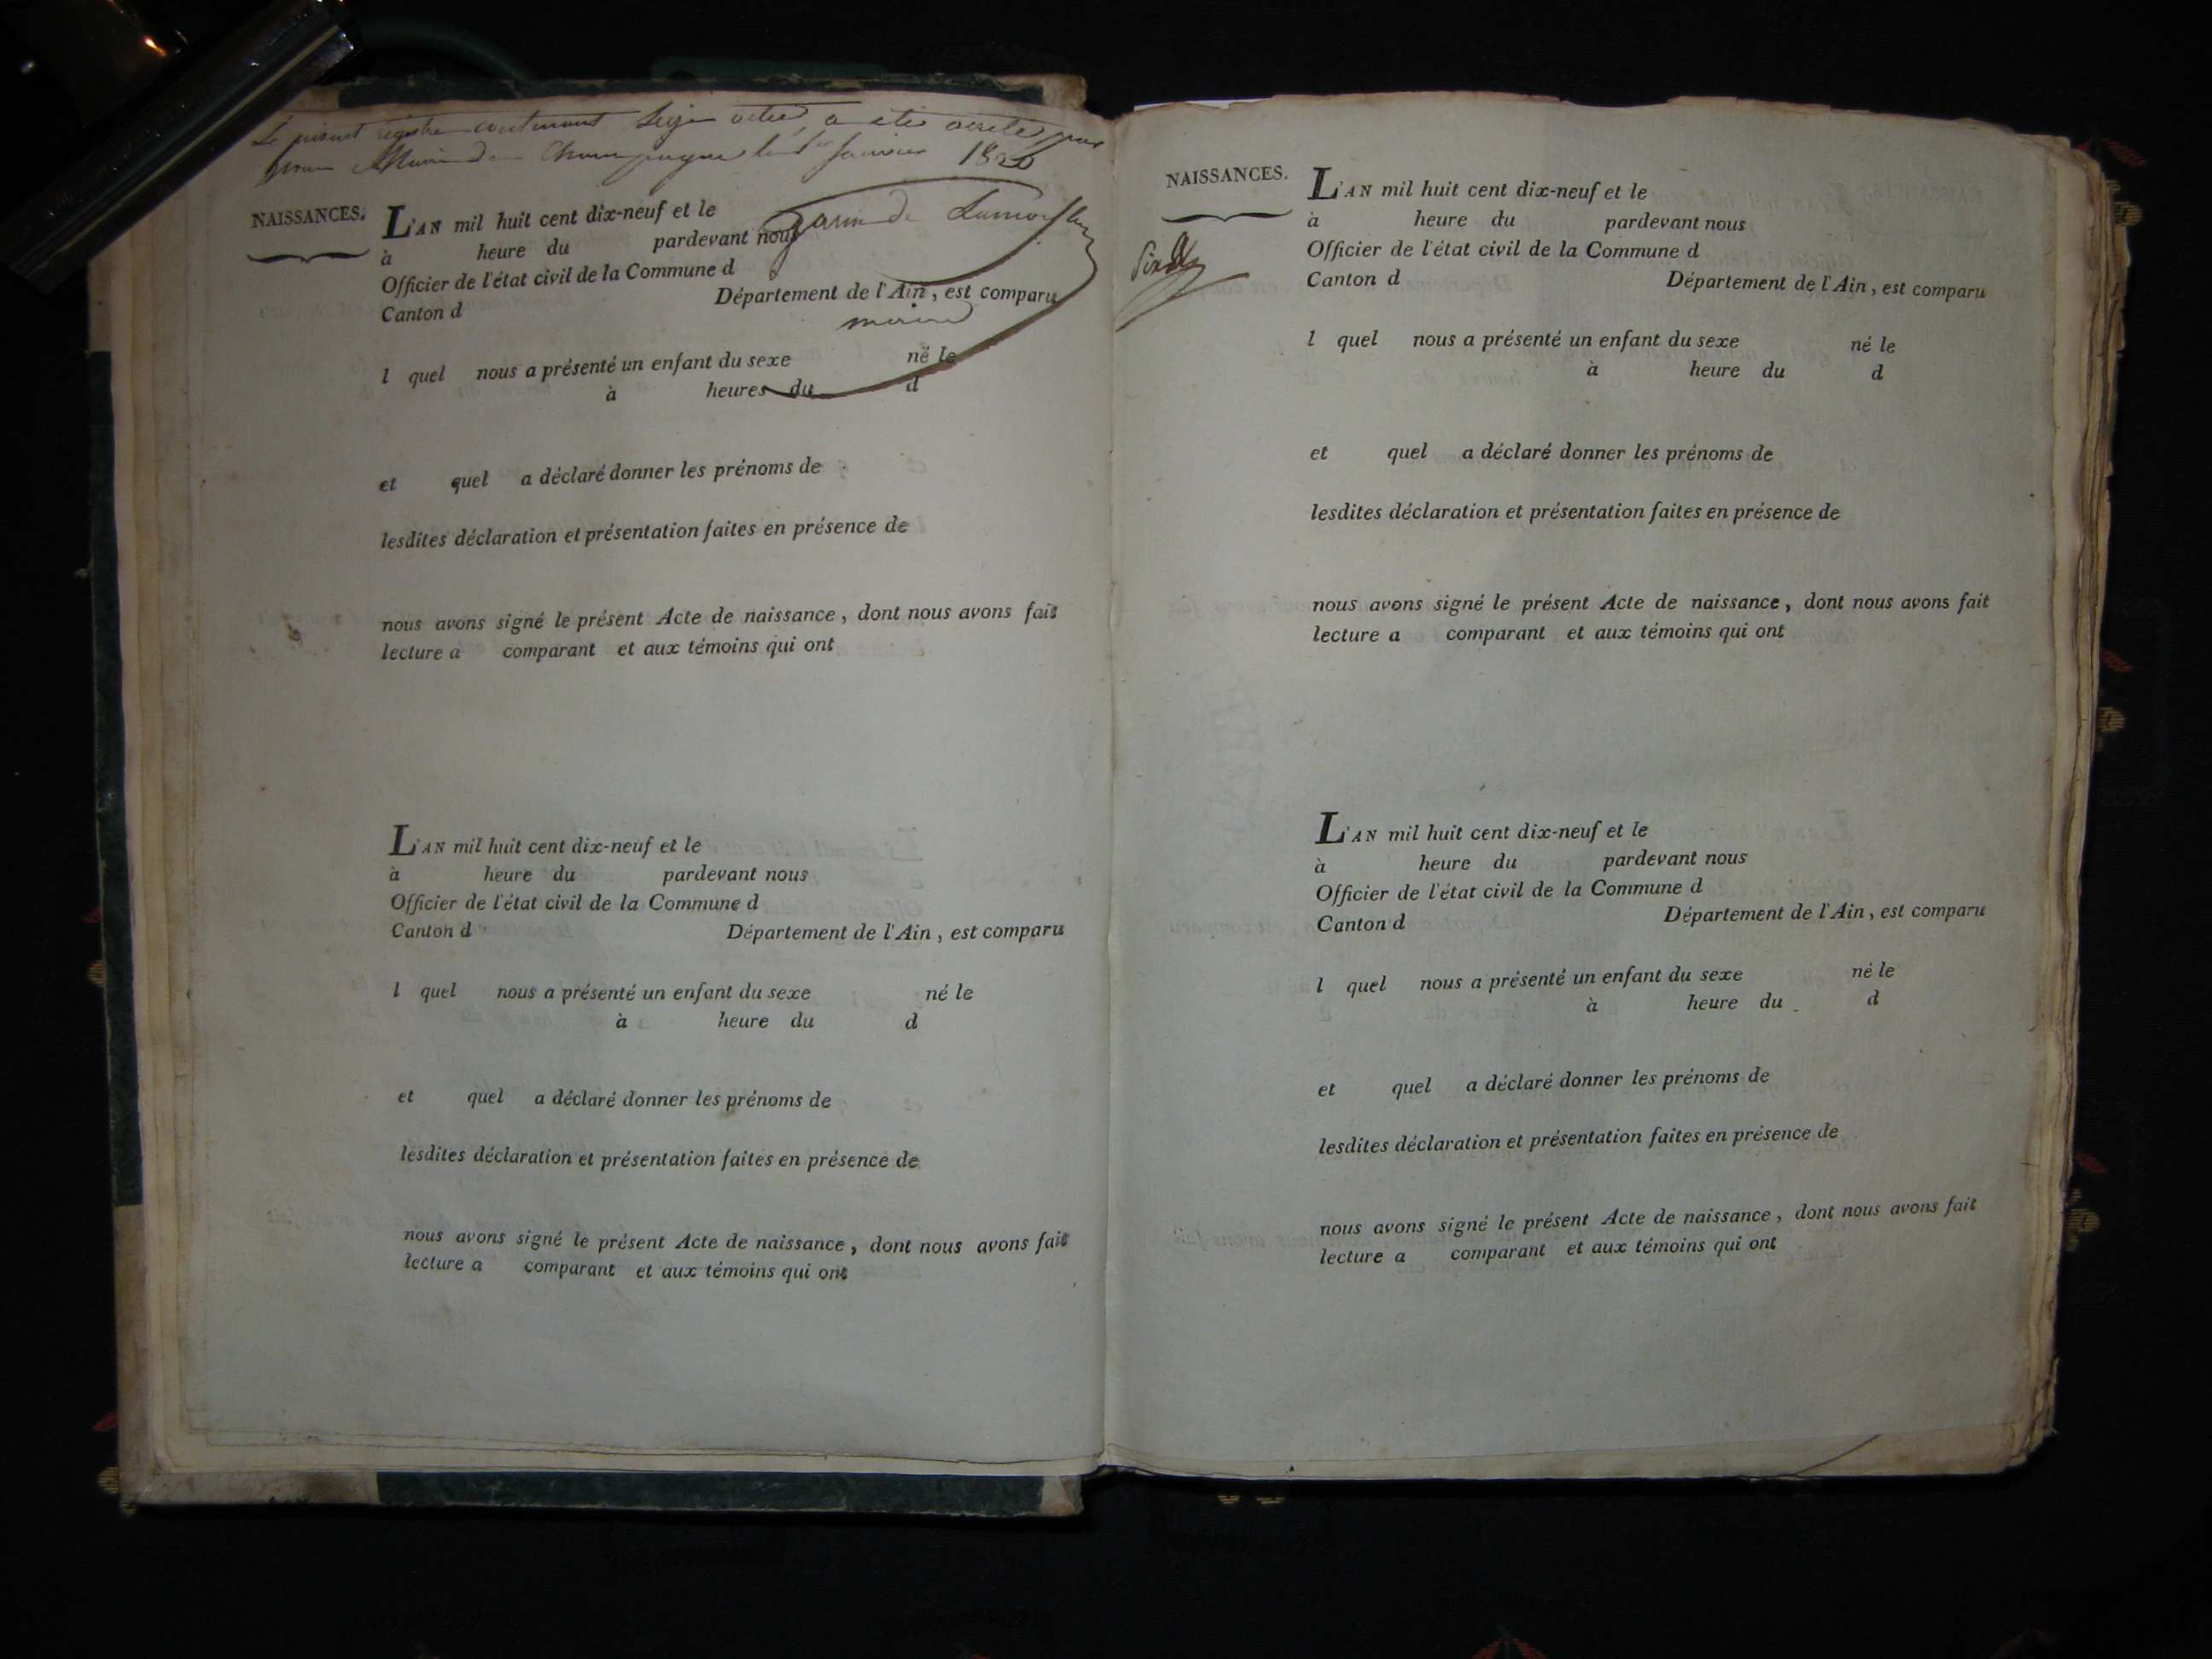 Le présent registre contenant seize actes, a été arrêté par
nous Maire de Champagne le 1er Janvier 1820
Garin de Lamorflan
maire
NAISSANCES.
L'AN mil huit cent dix-neuf et le
à heure du pardevant nous
Officier de l'état civil de la Commune d
Canton d Département de l'Ain, est comparu
l quel nous a présenté un enfant du sexe né le
à heures du d
et quel a déclaré donner les prénoms de
lesdites déclaration et présentation faites en présence de
nous avons signé le présent Acte de naissance, dont nous avons fait
lecture a comparant et aux témoins qui ont
L'AN mil huit cent dix-neuf et le
à heure du pardevant nous
Officier de l'état civil de la Commune d
Canton d Département de l'Ain, est comparu
l quel nous a présenté un enfant du sexe né le
à heure du d
et quel a déclaré donner les prénoms de
lesdites déclaration et présentation faites en présence de
nous avons signé le présent Acte de naissance, dont nous avons fait
lecture a comparant et aux témoins qui ont
NAISSANCES.
L'AN mil huit cent dix-neuf et le
à heure du pardevant nous
Officier de l'état civil de la Commune d
Canton d Département de l'Ain, est comparu
l quel nous a présenté un enfant du sexe né le
à heure du d
et quel a déclaré donner les prénoms de
lesdites déclaration et présentation faites en présence de
nous avons signé le présent Acte de naissance, dont nous avons fait
lecture a comparant et aux témoins qui ont
L'AN mil huit cent dix-neuf et le
à heure du pardevant nous
Officier de l'état civil de la Commune d
Canton d Département de l'Ain, est comparu
l quel nous a présenté un enfant du sexe né le
à heure du d
et quel a déclaré donner les prénoms de
lesdites déclaration et présentation faites en présence de
nous avons signé le présent Acte de naissance, dont nous avons fait
lecture a comparant et aux témoins qui ont